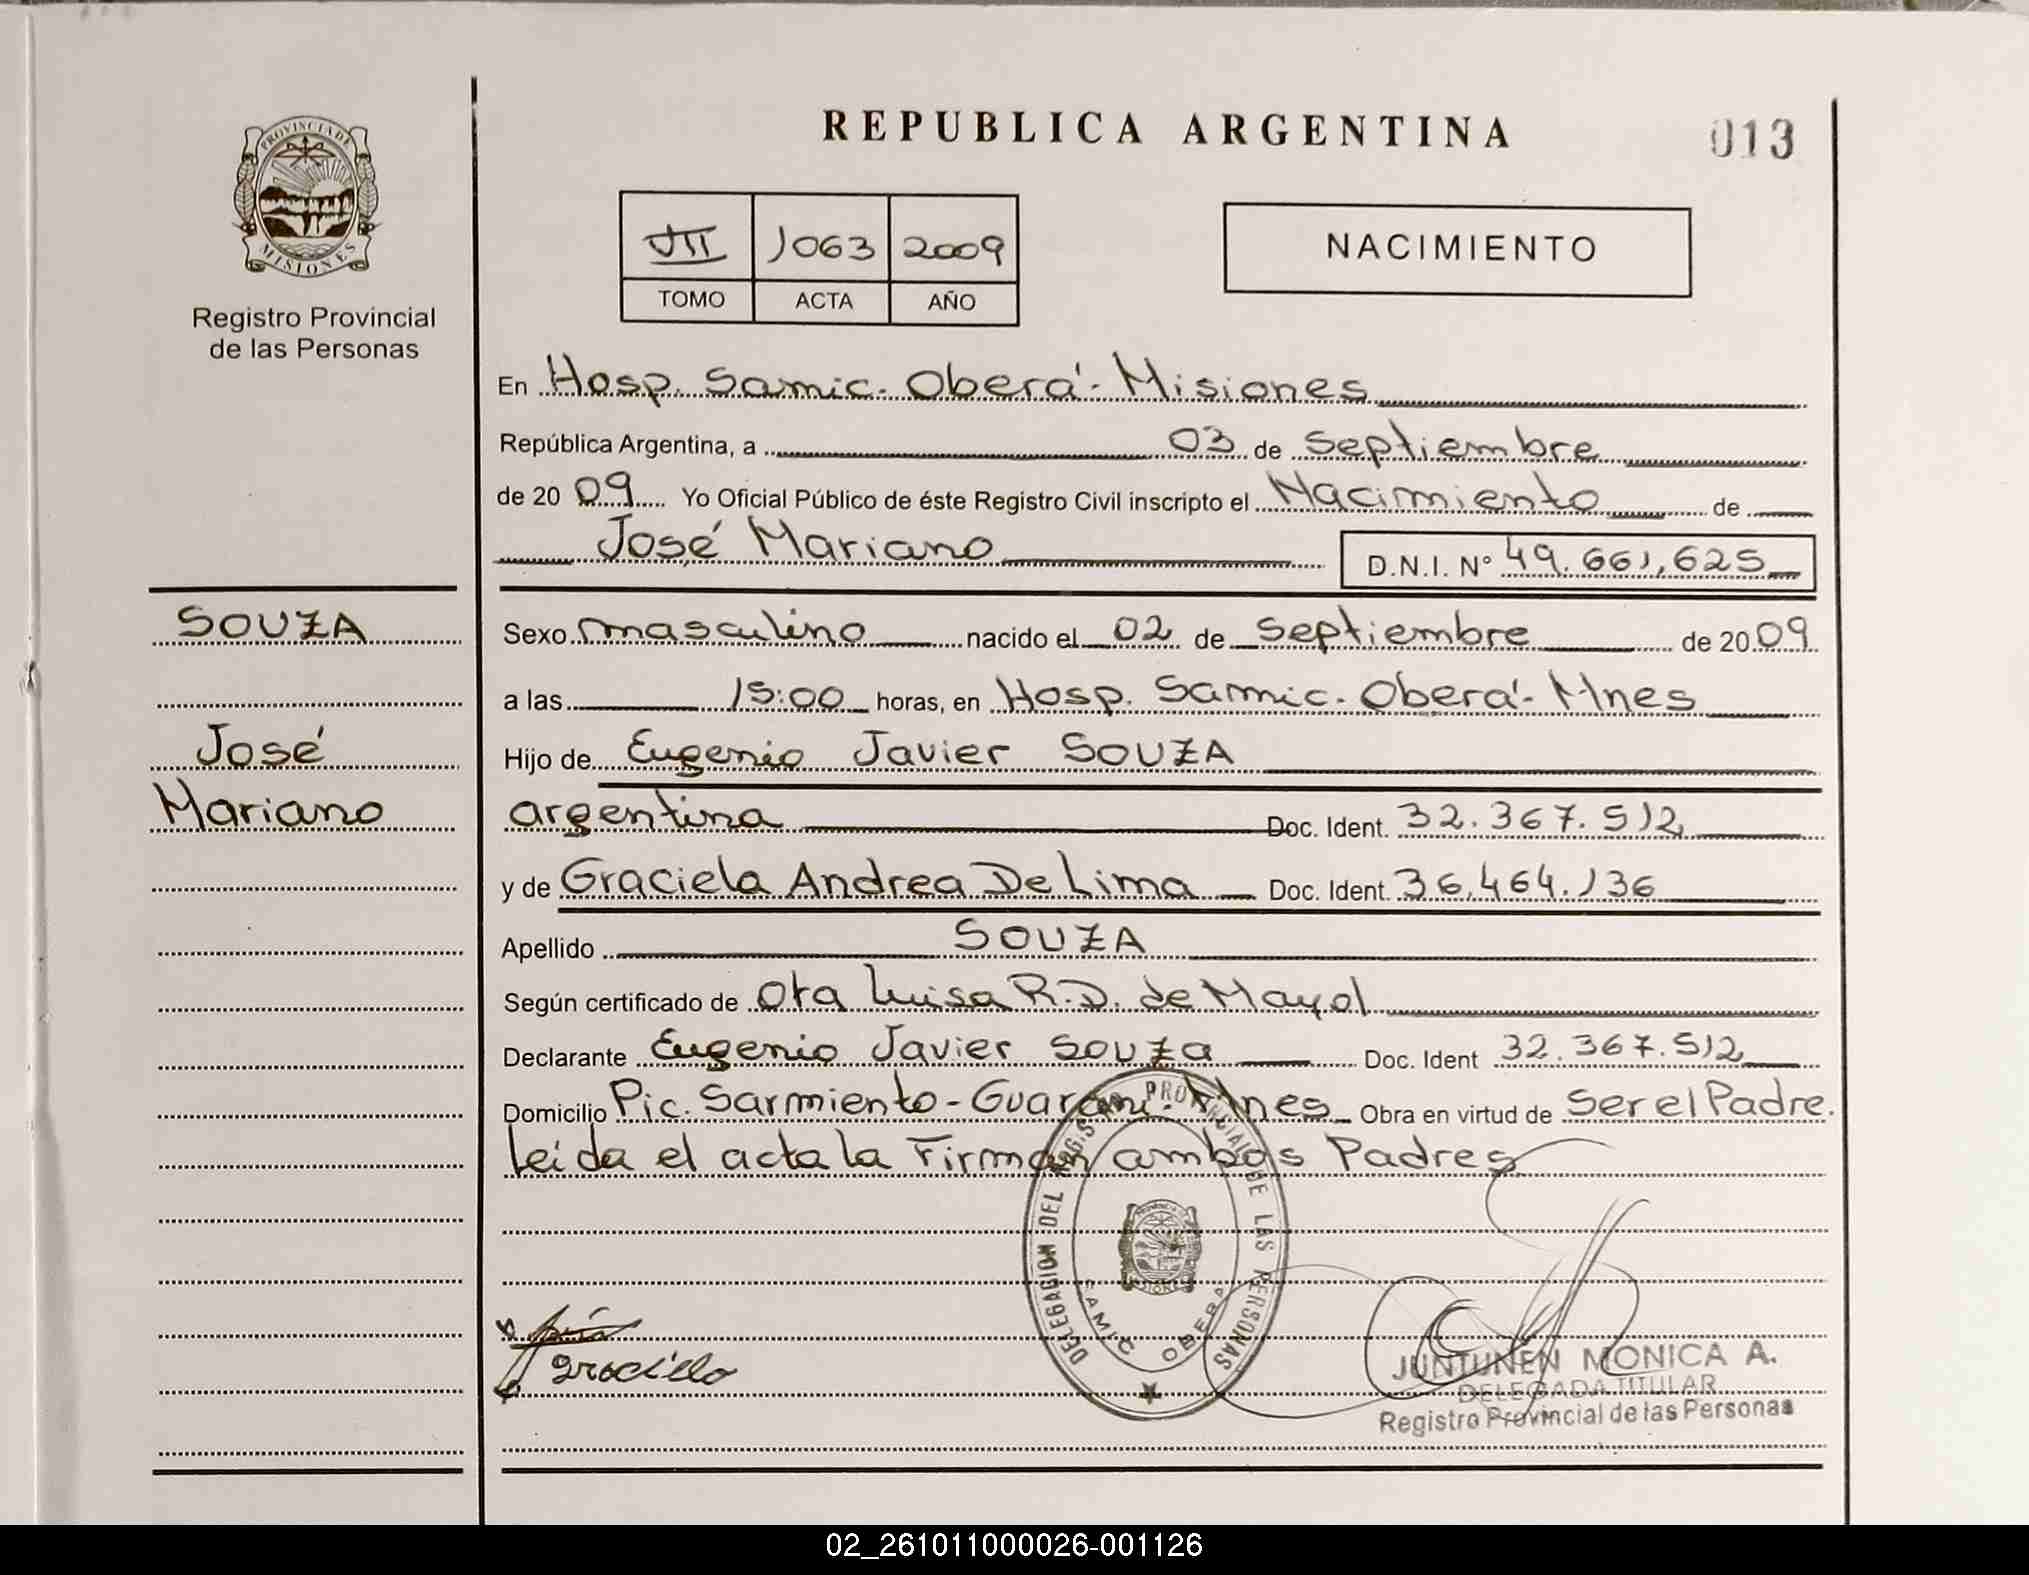 PROVINCIA DE
MISIONES
Registro Provincial
de las Personas
REPUBLICA ARGENTINA
013
VII 1063 2009
TOMO ACTA AÑO
NACIMIENTO
En Hosp. Samic. Oberá - Misiones
República Argentina, a 03 de Septiembre
de 2009 Yo Oficial Público de éste Registro Civil inscripto el Nacimiento de
José Mariano D.N.I. Nº 49.661,625
SOUZA
José
Mariano
Sexo masculino nacido el 02 de Septiembre de 2009
a las 15:00 horas, en Hosp. Samic. Oberá - Mnes
Hijo de Eugenio Javier SOUZA
argentina Doc. Ident. 32.367.512
y de Graciela Andrea De Lima Doc. Ident. 36,464.136
Apellido SOUZA
Según certificado de Ota Luisa R.D. de Mayol
Declarante Eugenio Javier SOUZA Doc. Ident 32.367.512
Domicilio Pic. Sarmiento - Guaraní. Mnes Obra en virtud de Ser el Padre.
Leida el acta la Firman ambos Padres
DELEGACION DEL REGIST. PROVINCIAL DE LAS PERSONAS
SAMIC OBERA
JUNTUNEN MONICA A.
DELEGADA TITULAR
Registro Provincial de las Personas
02_261011000026-001126